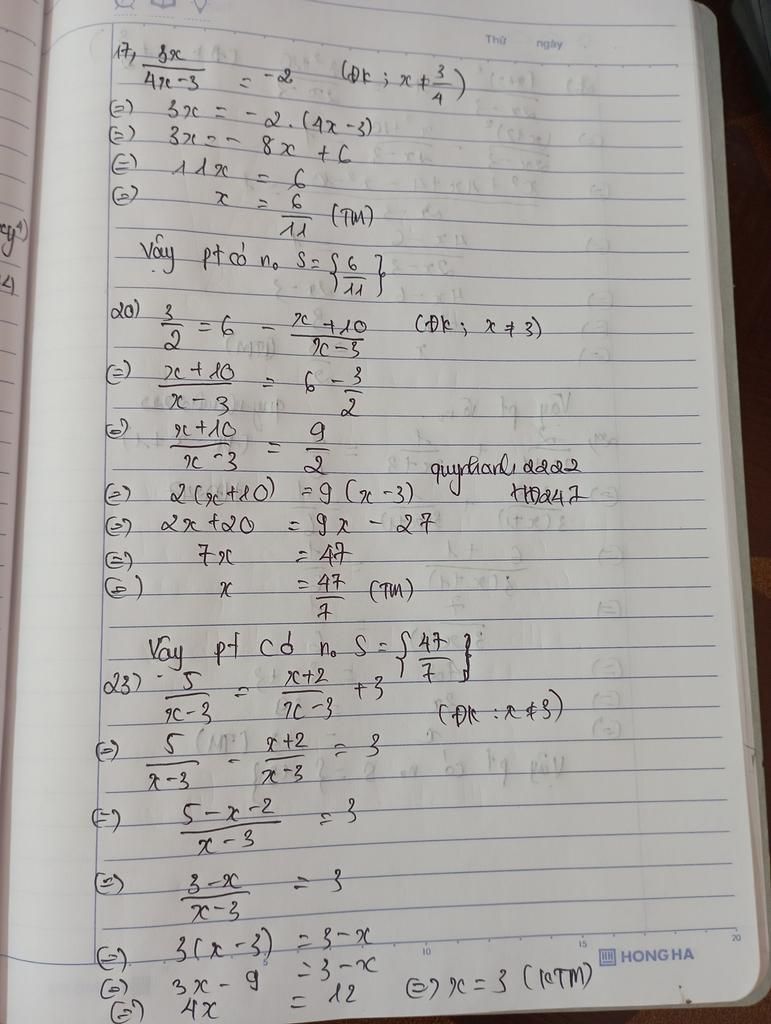 Thứ ngày
17, 3x/(4x-3) = -2 (ĐK ; x ≠ 3/4)
(=) 3x = -2.(4x-3)
(=) 3x = - 8x + 6
(=) 11x = 6
(=) x = 6/11 (TM)
Vậy pt có no S = {6/11}
20) 3/2 = 6 - (x+10)/(x-3) (ĐK ; x ≠ 3)
(=) (x+10)/(x-3) = 6 - 3/2
(=) (x+10)/(x-3) = 9/2
quynhanh2222
(=) 2(x+10) = 9(x-3)
(=) 2x+20 = 9x - 27
(=) 7x = 47
(=) x = 47/7 (TM)
Vậy pt có no S = {47/7}
23) 5/(x-3) = (x+2)/(x-3) + 3
(ĐK : x ≠ 3)
(=) 5/(x-3) - (x+2)/(x-3) = 3
(=) (5-x-2)/(x-3) = 3
(=) (3-x)/(x-3) = 3
(=) 3(x-3) = 3-x
(=) 3x - 9 = 3-x
(=) 4x = 12 (=) x = 3 (KTM)
5 10 15 20
HONG HA